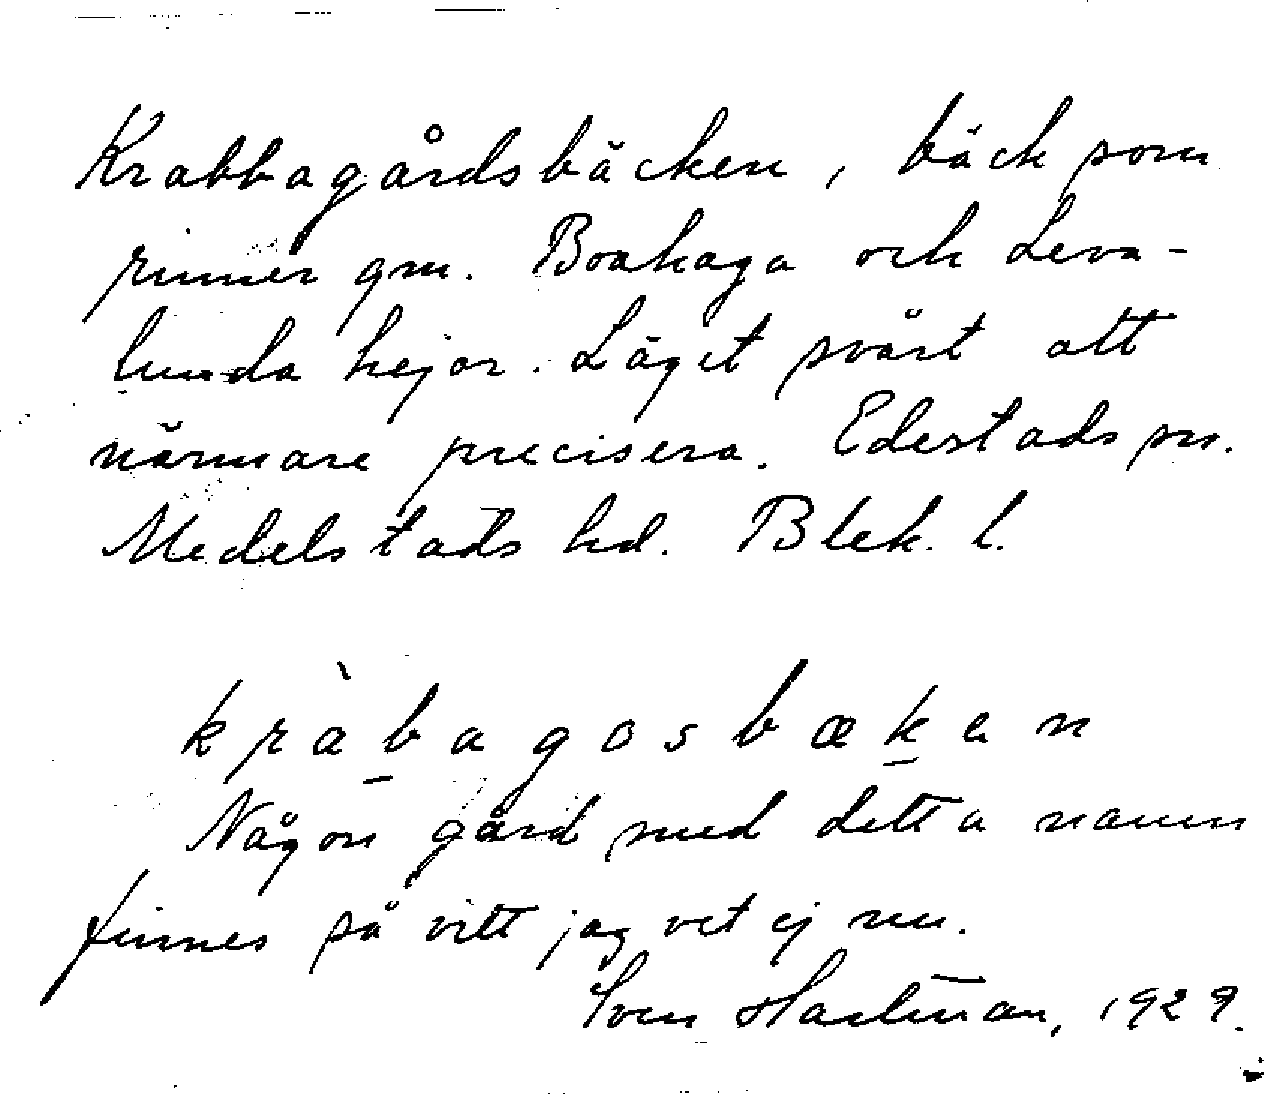 Krabbagårdsbäcken, bäck som
rinner gm. Boahaga och Leva-
lunda hejor. Läget svårt att
närmare precisera. Edestads sn.
Medelstads hd. Blek. l.
kràbagosbækan
Någon gård med detta namn
finnes så vitt jag vet ej nu.
Sven Hartman, 1929.